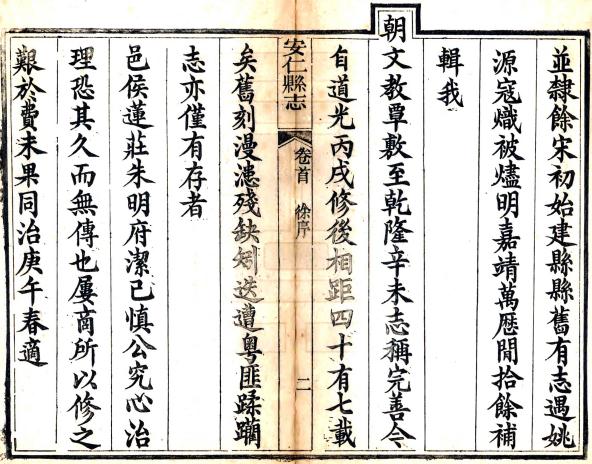 並隸餘宋初始建縣縣舊有志遇姚
源寇熾被燼明嘉靖萬歷閒拾餘補
輯我
朝文教覃敷至乾隆辛未志稱完善今
自道光丙戌修後相距四十有七載
安仁縣志
卷首
徐序
二
矣舊刻漫漶殘缺矧迭遭粵匪蹂躪
志亦僅有存者
邑侯蓮莊朱明府潔己慎公究心治
理恐其久而無傳也屢商所以修之
艱於費未果同治庚午春適